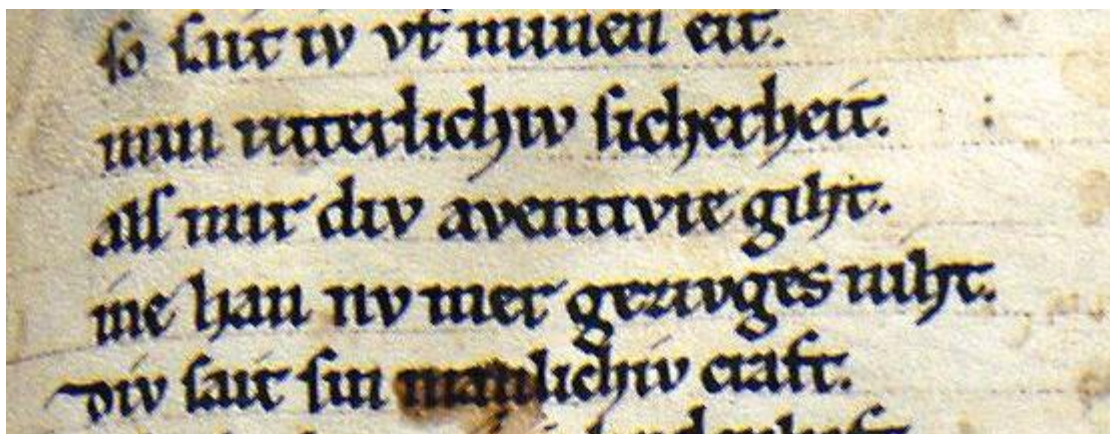 ſo ſait iv vf minen eit.
min ritterlichiv ſicherheit.
alſ mir div aventivre giht.
ine han nv mer gezivges niht.
Div ſait ſin manlichiv craft.